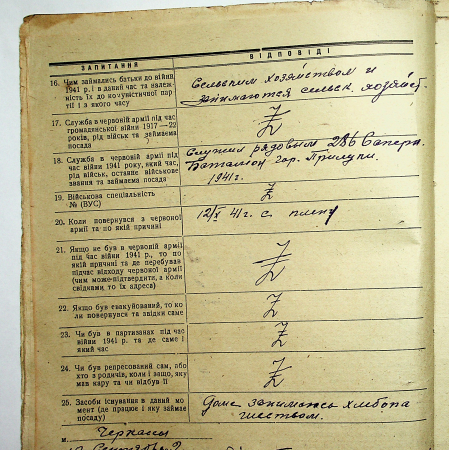 ЗАПИТАННЯ ВІДПОВІДІ
16. Чим займались батьки до війни
1941 р. і в даний час та належ-
ність їх до комуністичної пар-
тії і з якого часу
Сельским хозяйством и
занимаются сельск. хозяйст.
17. Служба в червоній армії під час
громаденської війни 1917—22
років, рід військ та займаєма
посада
Z
18. Служба в червоній армії під
час війни 1941 року, який час,
рід військ, останнє військове
звання та займаєма посада
Служил рядовым 286 саперн.
Баталіон гор. Прилуки.
1941г.
19. Військова спеціальність
№ (ВУС)
Z
20. Коли повернувся з червоної
армії та по якій причині
12/X 41г. с плену
21. Якщо не був в червоній армії
під час війни 1941 р., то по
якій причині та де перебував
підчас відходу червоної армії
(чим може підтвердити, а коли
свідками, то їх адреса)
Z
22. Якщо був евакуйований, то ко-
ли повернувся та звідки саме
Z
23. Чи був в партизанах під час
війни 1941 р. та де саме і
який час
Z
24. Чи був репресований сам, або
хто з родичів, коли і защо, яку
мав кару та чи відбув її
Z
25. Засоби існування в даний мо-
мент (де працює і яку займає
посаду)
Дома занимаюсь хлебопа
шеством.
м. Черкассы